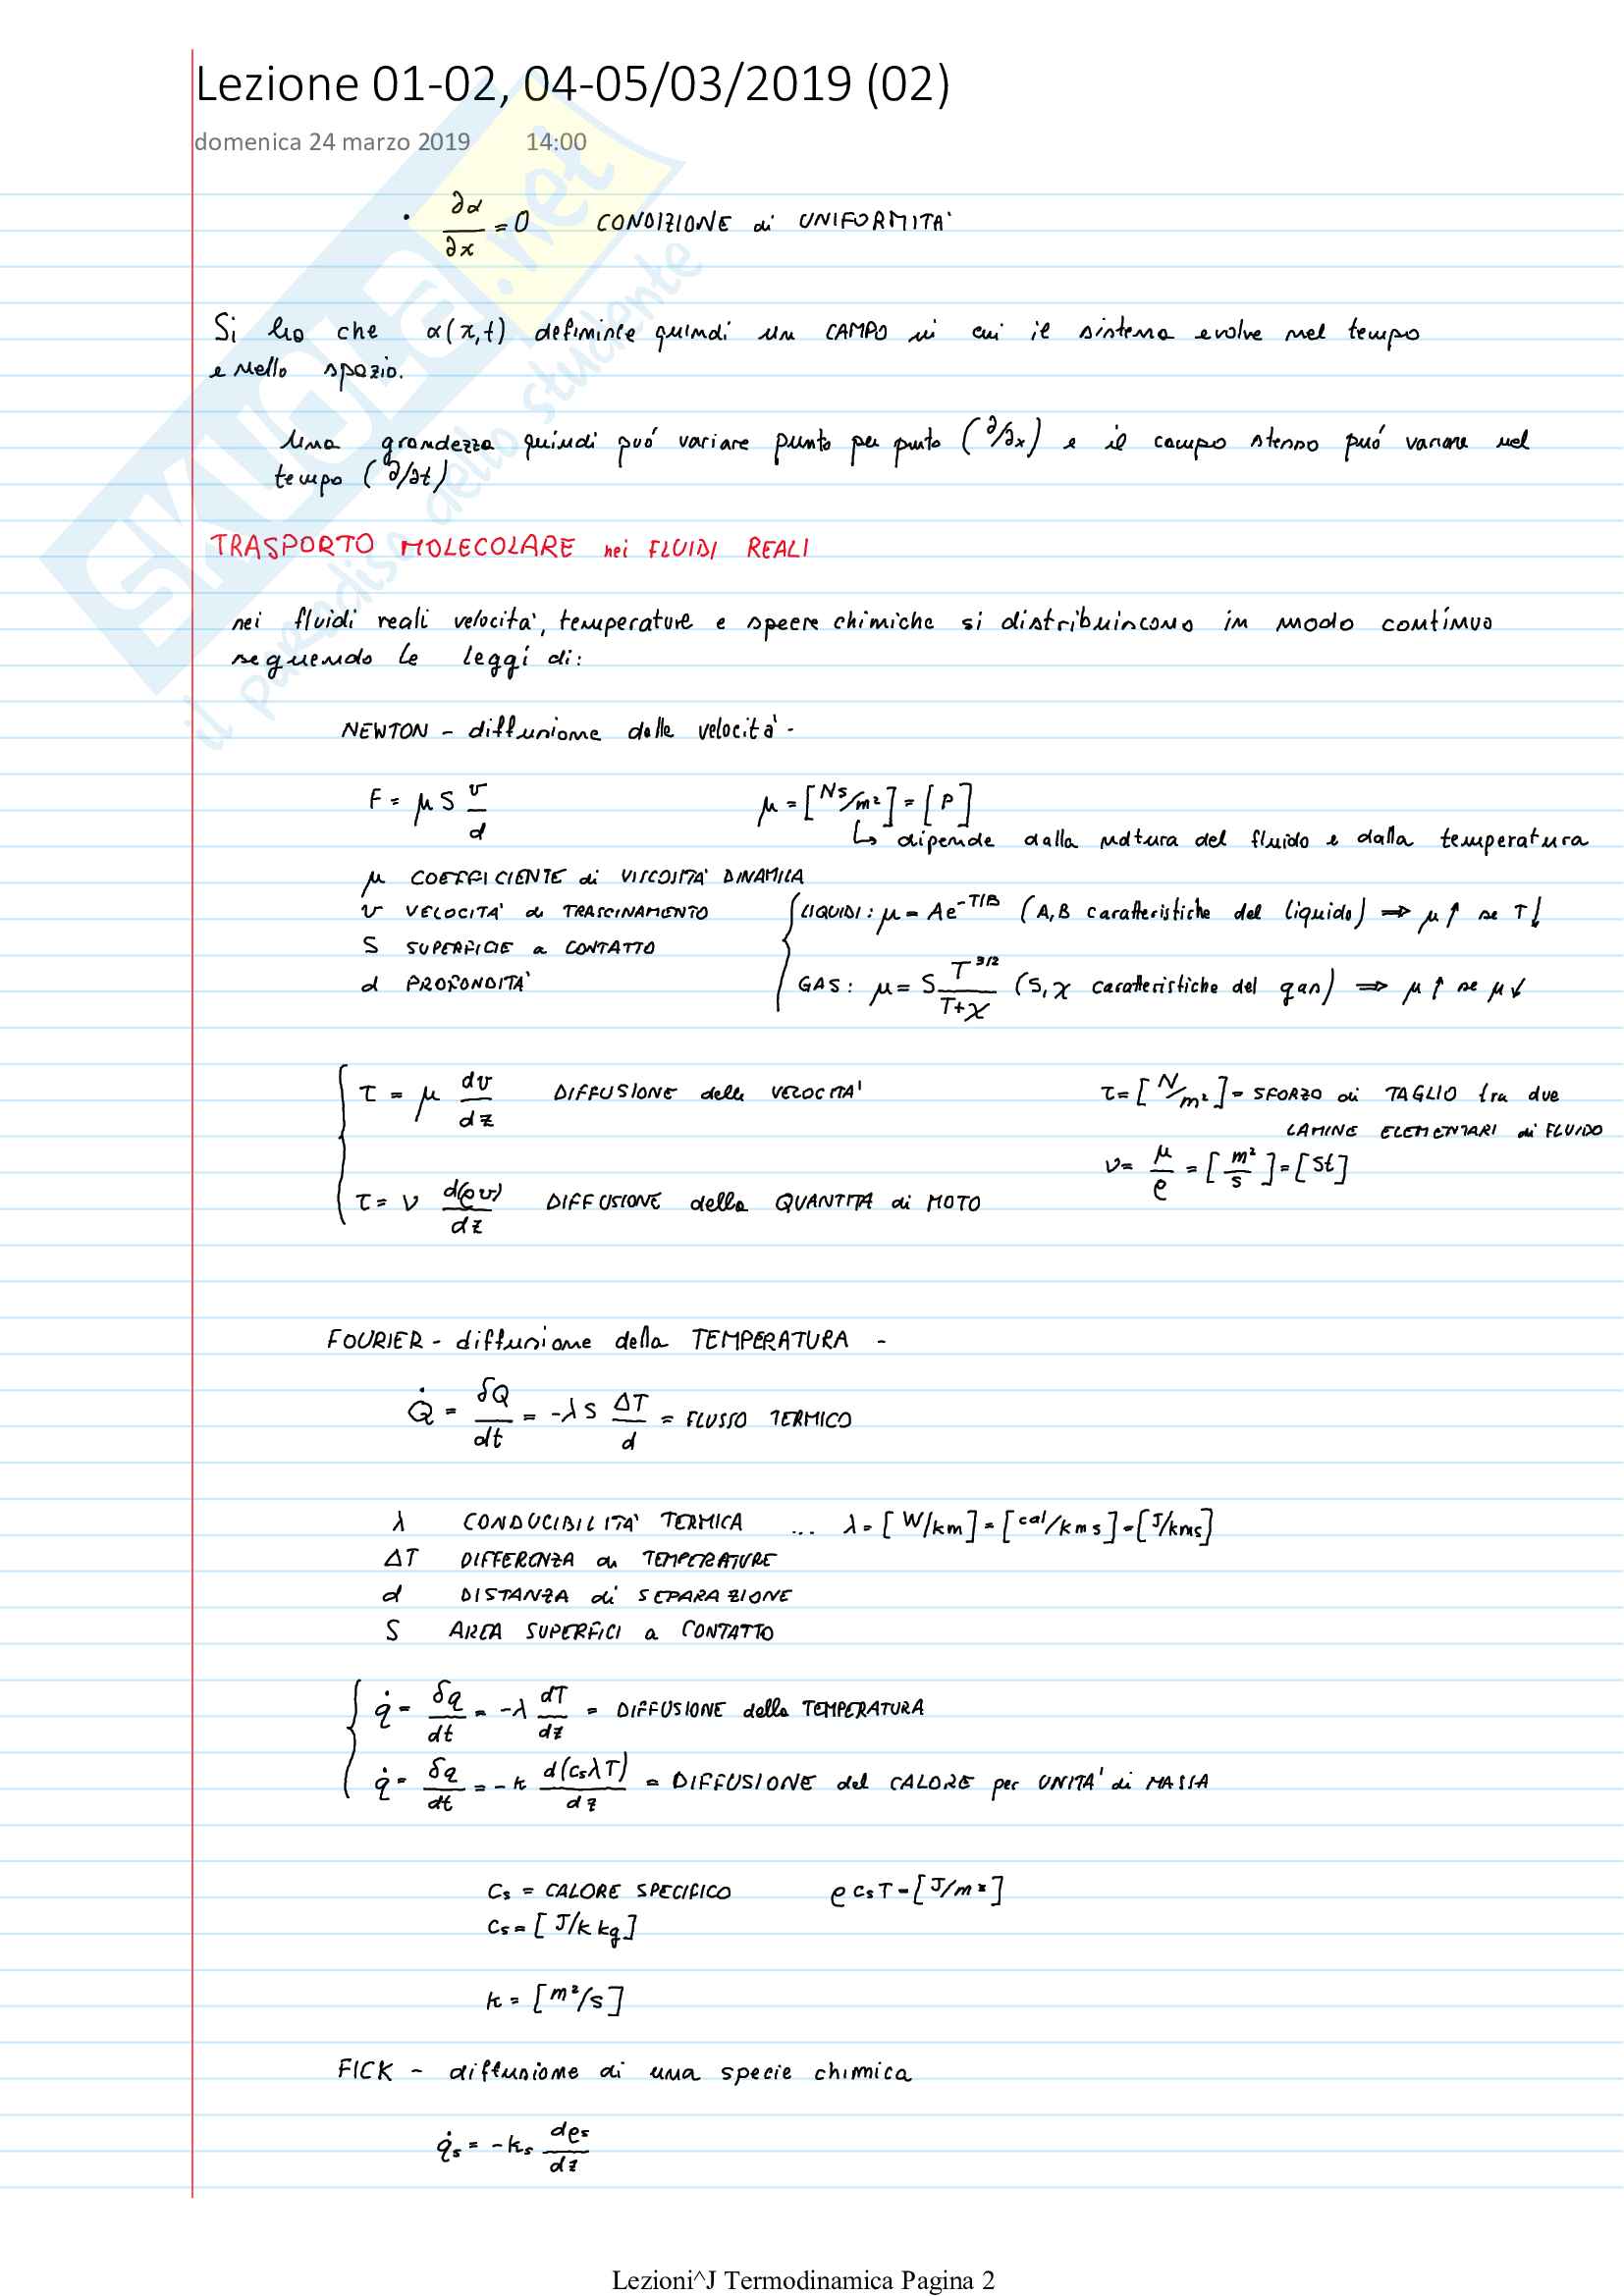 Lezione 01-02, 04-05/03/2019 (02)
domenica 24 marzo 2019 14:00
• ∂α/∂x = 0 CONDIZIONE di UNIFORMITA'
Si ha che α(x,t) definisce quindi un CAMPO in cui il sistema evolve nel tempo
e nello spazio.
Una grandezza quindi può variare punto per punto (∂/∂x) e il campo stesso può variare nel
tempo (∂/∂t)
TRASPORTO MOLECOLARE nei FLUIDI REALI
nei fluidi reali velocita', temperature e specie chimiche si distribuiscono in modo continuo
seguendo le leggi di:
NEWTON - diffusione delle velocità -
F = μ S v/d μ = [Ns/m²] = [P]
↳ dipende dalla natura del fluido e dalla temperatura
μ COEFFICIENTE di VISCOSITA' DINAMICA
v VELOCITA' di TRASCINAMENTO { LIQUIDI: μ = Ae^-T/B (A,B caratteristiche del liquido) ⇒ μ↑ se T↓
S SUPERFICIE a CONTATTO
d PROFONDITA' GAS: μ = S T^3/2/(T+χ) (S, χ caratteristiche del gas) ⇒ μ↑ se μ↓
{ τ = μ dv/dz DIFFUSIONE delle VELOCITA' τ = [N/m²] = SFORZO di TAGLIO tra due
LAMINE ELEMENTARI di FLUIDO
ν = μ/ρ = [m²/s] = [St]
τ = ν d(ρv)/dz DIFFUSIONE della QUANTITA di MOTO
FOURIER - diffusione della TEMPERATURA -
Q̇ = δQ/dt = -λ S ΔT/d = FLUSSO TERMICO
λ CONDUCIBILITA' TERMICA ... λ = [W/km] = [cal/kms] = [J/kms]
ΔT DIFFERENZA di TEMPERATURE
d DISTANZA di SEPARAZIONE
S AREA SUPERFICI a CONTATTO
{ q̇ = δq/dt = -λ dT/dz = DIFFUSIONE della TEMPERATURA
q̇ = δq/dt = -k d(CsλT)/dz = DIFFUSIONE del CALORE per UNITA' di MASSA
Cs = CALORE SPECIFICO ρCsT = [J/m³]
Cs = [J/k kg]
k = [m²/s]
FICK - diffusione di una specie chimica
q̇s = -ks dρs/dz
Lezioni^J Termodinamica Pagina 2
SKUOLA.net
il paradiso dello studente